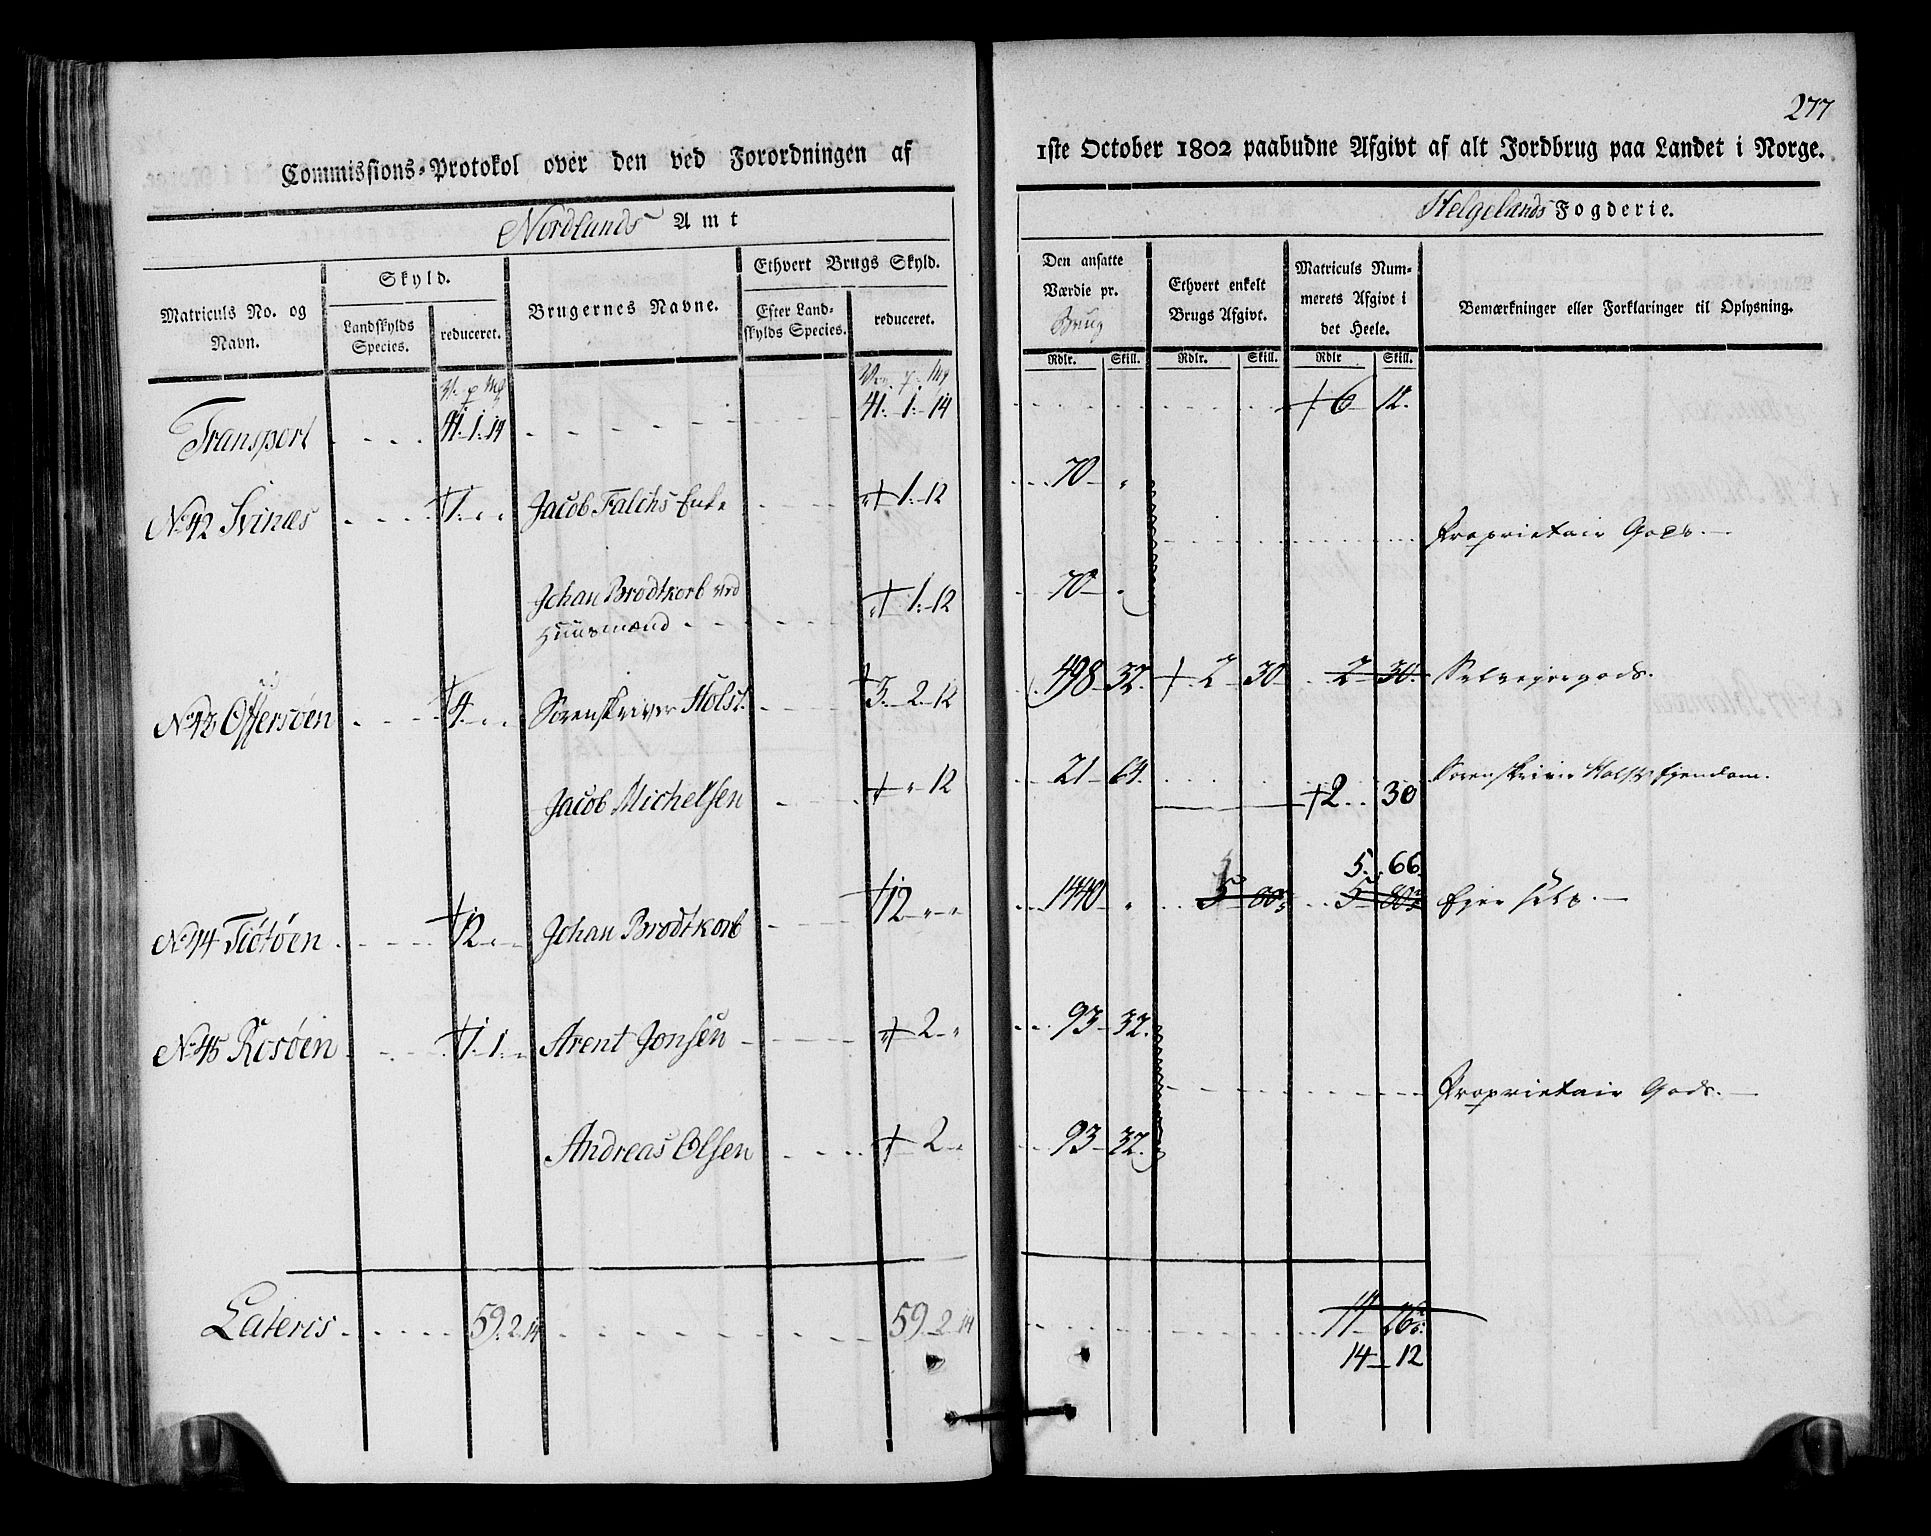 277
Commissions-Protokol over den ved Forordningen af 1ste October 1802 paabudne Afgivt af alt Jordbrug paa Landet i Norge.
Nordlands Amt
Helgelands Fogderie.
Matriculs No. og Navn.
Skyld.
Landskylds Species.
reduceret.
Brugernes Navne.
Ethvert Brugs Skyld.
Efter Landskylds Species.
reduceret.
Den ansatte Værdie pr. Brug
Rdlr. Skill.
Ethvert enkelt Brugs Afgivt.
Rdlr. Skill.
Matriculs Nummerets Afgivt i det Heele.
Rdlr Skill.
Bemærkninger eller Forklaringer til Oplysning.
V. p Mk
Transport 41. 1. 14 41. 1. 14 6 12.
No 42 Svinæs 1. Jacob Falchs Enke 1. 12 70
Proprietair Gods.
Johan Brodtkorb ved 1. 12 70
Huusmænd
No 43 Offersøen 4. Sorenskriver Holst. 3. 2. 12 498 32. 2 30 2 30. Selveyergods.
Jacob Michelsen 12 21 64. 2 30 Sorenskriver Holsts Ejendom.
5. 66.
No 44 Tiötöen 12 Johan Brodtkorb 12 1440 5 80 5 80 Ejer selv.
No 45 Rosøen 1. 1. Arent Jonsen 2 93 32.
Proprietair Gods.
Andreas Olsen 2 93 32.
Lateris 59. 2. 14 59. 2. 14 14 26
14 12